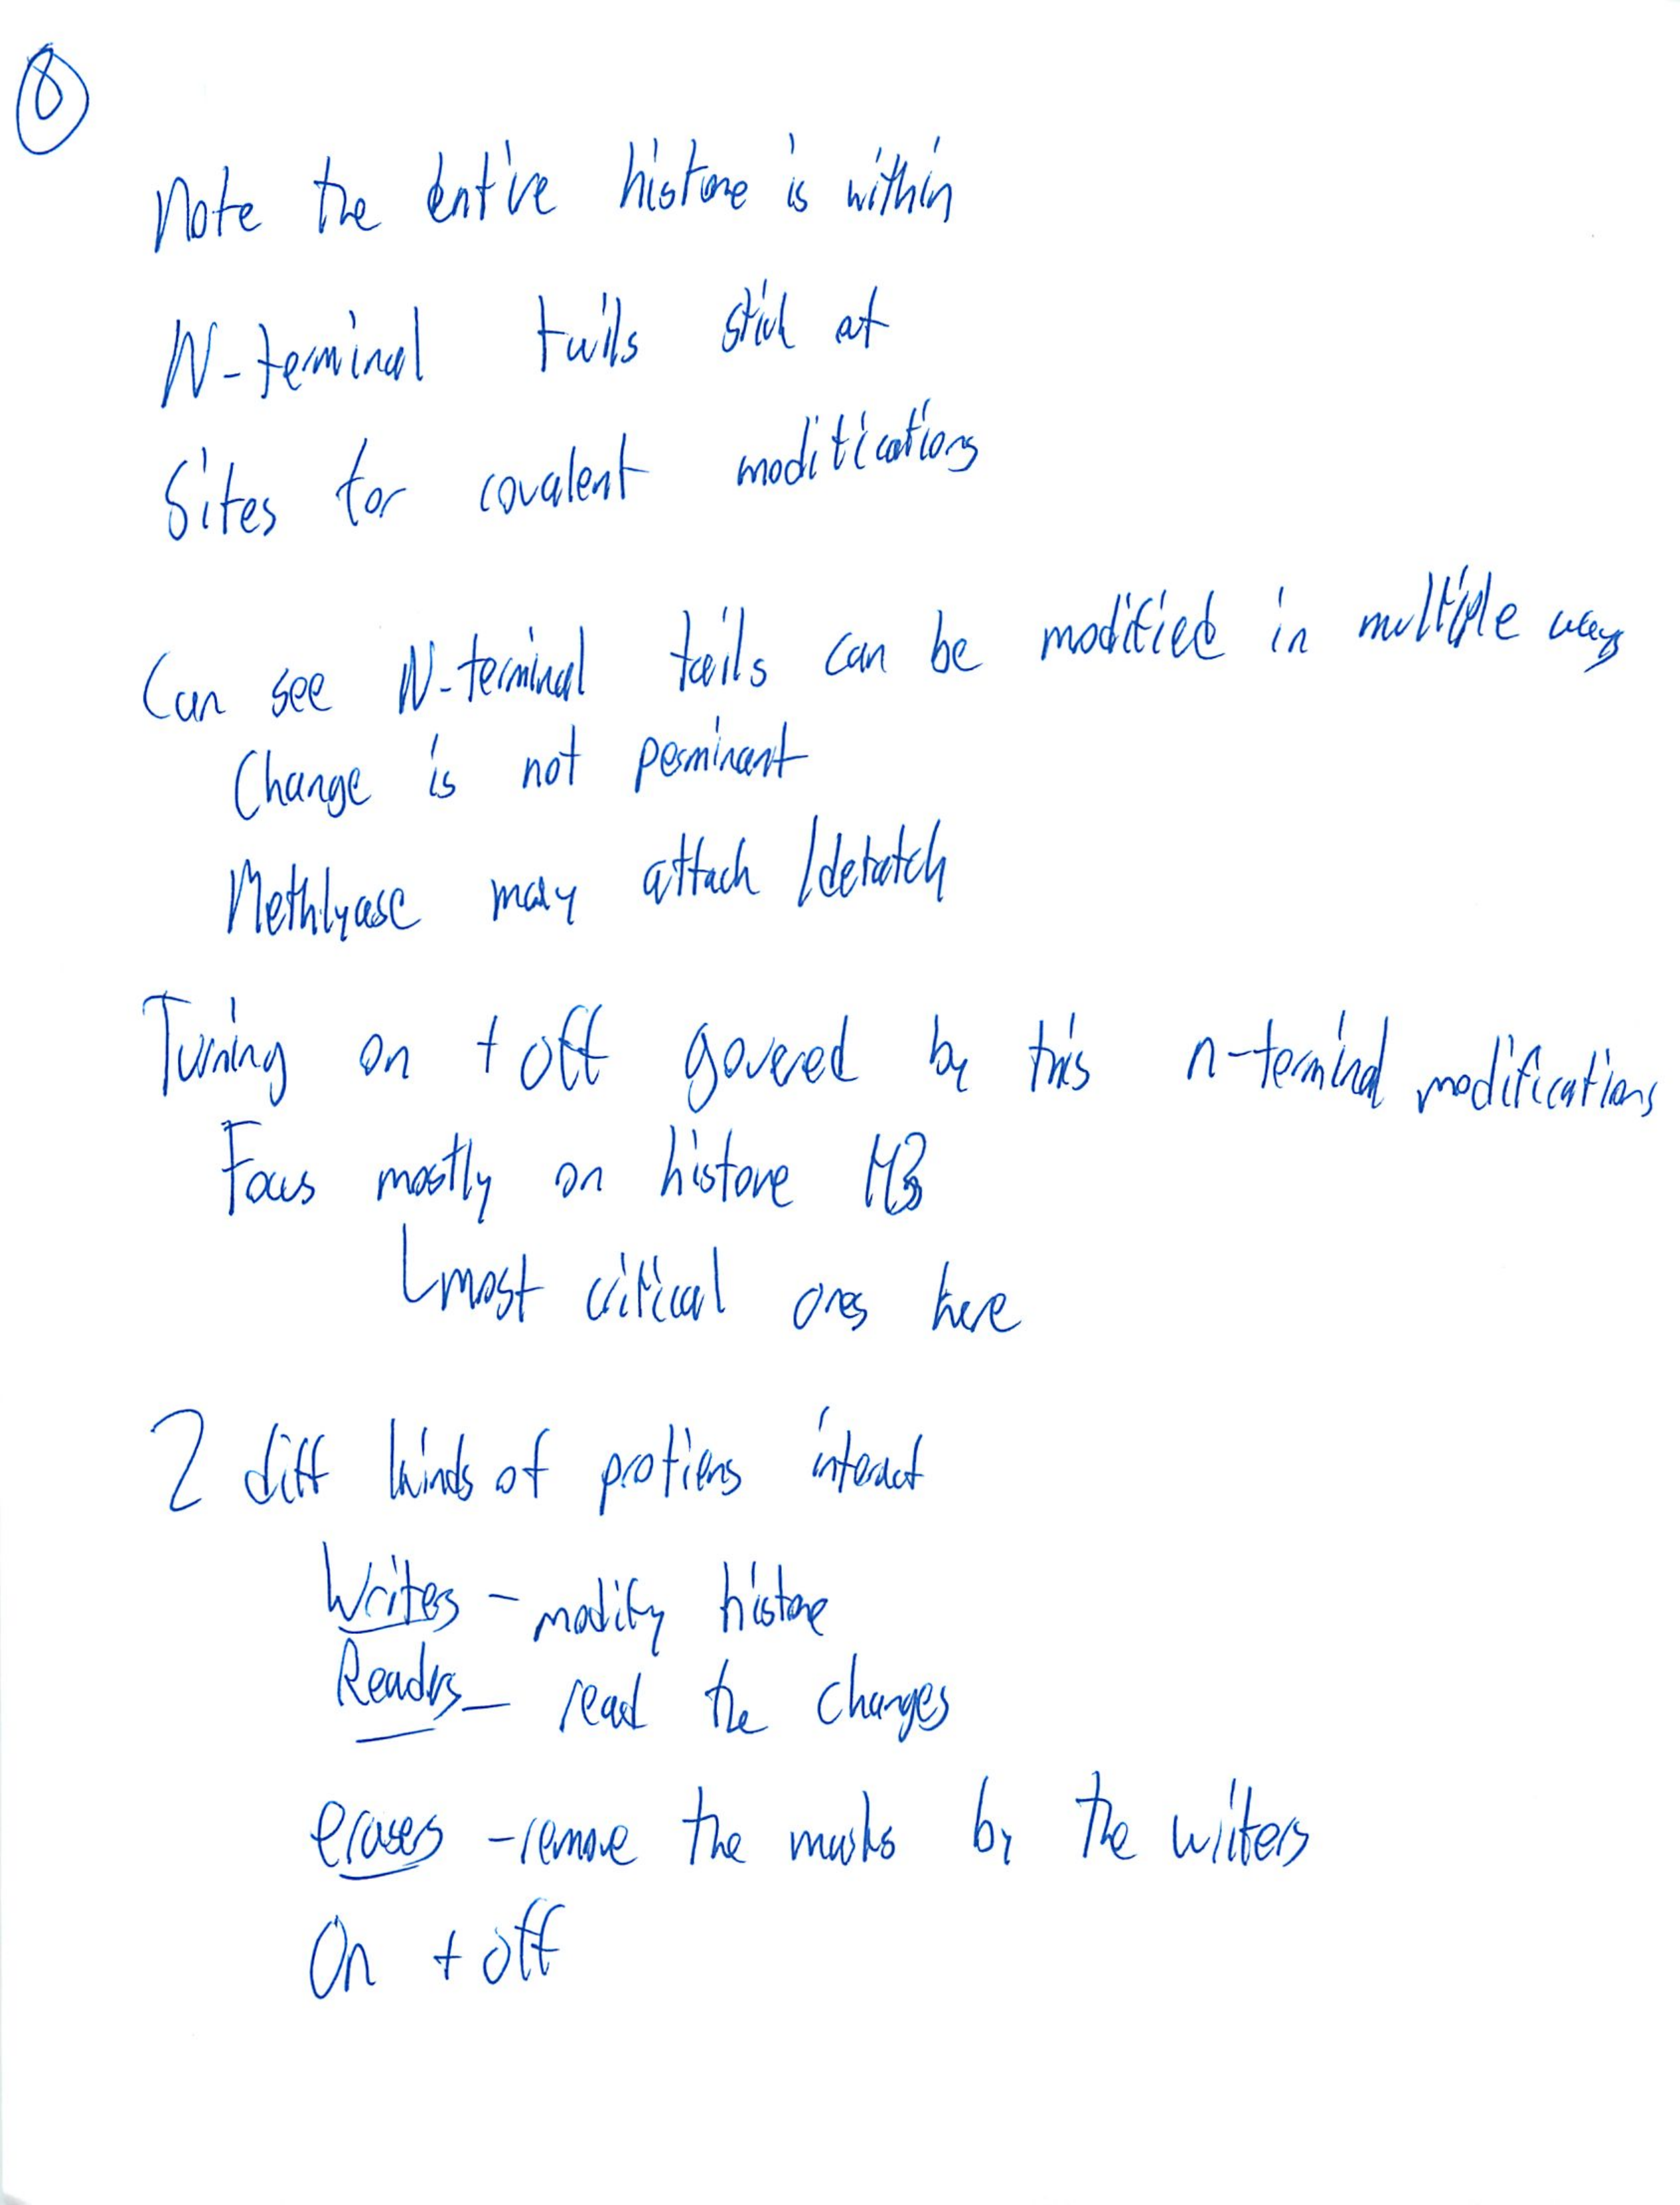 8
Note the entire histone is within
N-terminal tails stick out
Sites for covalent modifications
Can see N-terminal tails can be modified in multiple ways
Change is not perminant
Methlyase may attach / detatch
Turning on + off govered by this n-terminal modifications
Focus mostly on histone H3
most critical ones here
2 diff kinds of protiens interact
Writers - modify histone
Readers - read the changes
erasers - remove the marks by the writers
On + off